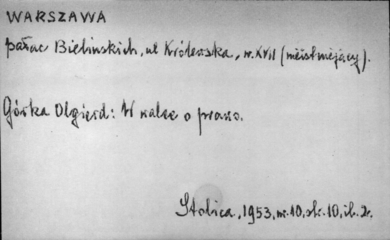 WARSZAWA
pałac Bielińskich, ul Królewska, w. XVII (nieistniejący).
Górka Olgierd: W walce o prawo.
Stolica, 1953, nr. 10, sk. 10, ib. 2.